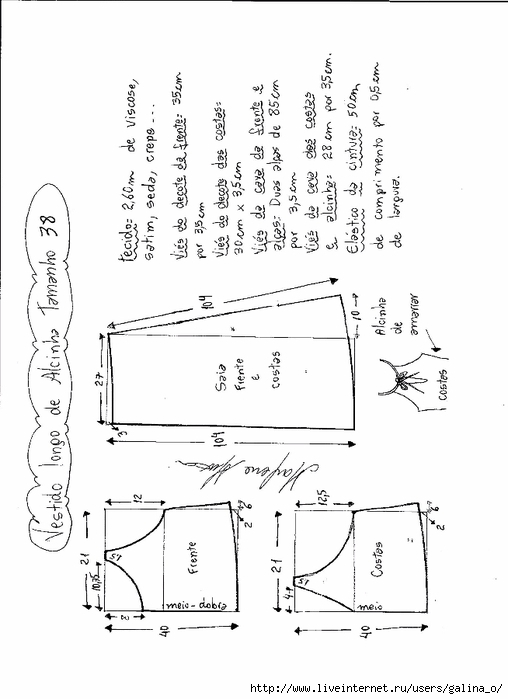 Vestido longo de Alcinha Tamanho 38
tecido= 2,60m de viscose,
satim, seda, crepe ...
Viés do decote da frente: 35cm
por 3,5cm
Viés do decote das costas:
30cm x 3,5cm
Viés da cava da frente e
alças: Duas alças de 85cm
por 3,5cm
Viés da cava das costas
e alcinha: 28 cm por 3,5cm.
Elástico da cintura: 50cm
de comprimento por 0,5cm
de largura.
27
3
104
104
10
Saia
Frente
e
costas
Alcinha
de
amarrar
costas
21
12
10,75
8
40
Frente
meio-dobra
6
2
21
12,5
4
40
Costas
meio
6
2
http://www.liveinternet.ru/users/galina_o/